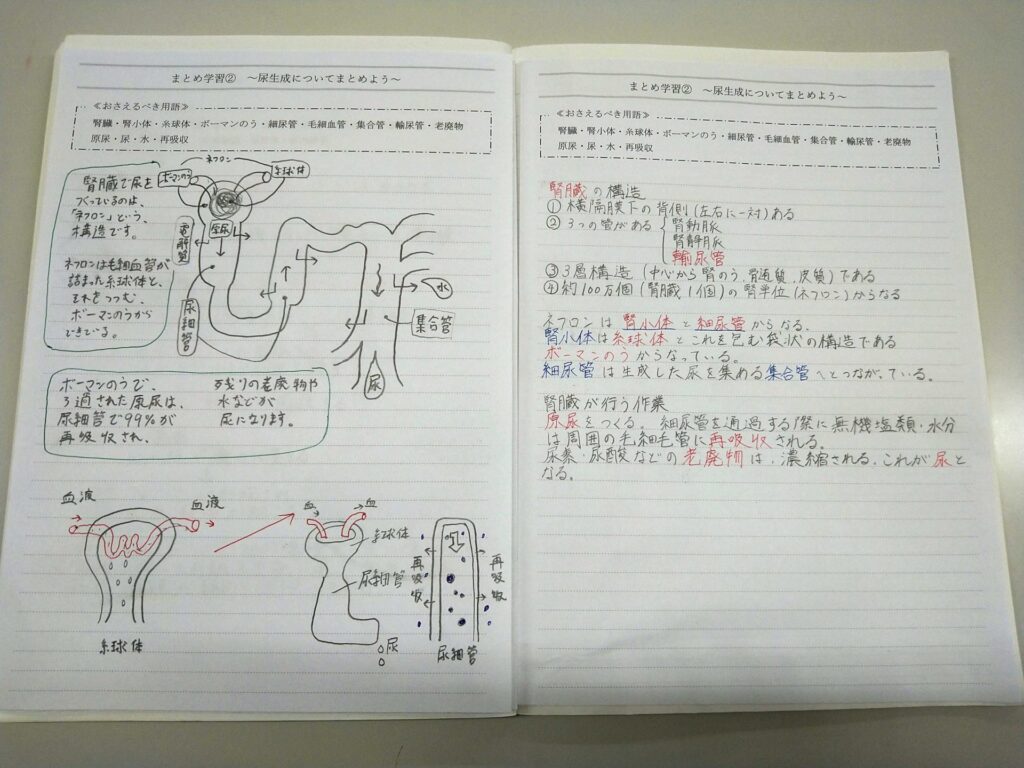 まとめ学習② ～尿生成についてまとめよう～
≪おさえるべき用語≫
腎臓・腎小体・糸球体・ボーマンのう・細尿管・毛細血管・集合管・輸尿管・老廃物
原尿・尿・水・再吸収
ネフロン
ボーマンのう
糸球体
腎臓で尿を
つくっているのは、
「ネフロン」という、
構造です。
ネフロンは毛細血管が
詰まった糸球体と、
それをつつむ、
ボーマンのうから
できている。
原尿
電解質
尿細管
水
集合管
尿
ボーマンのうで、
ろ過された原尿は、
尿細管で99%が
再吸収され、
残りの老廃物や
水などが
尿になります。
血液
血液
糸球体
血
血
糸球体
尿細管
尿
再吸収
再吸収
尿細管
まとめ学習② ～尿生成についてまとめよう～
≪おさえるべき用語≫
腎臓・腎小体・糸球体・ボーマンのう・細尿管・毛細血管・集合管・輸尿管・老廃物
原尿・尿・水・再吸収
腎臓の構造
①横隔膜下の背側(左右に一対)ある
② 3つの管がある 腎動脈
腎静脈
輸尿管
③ 3層構造(中心から腎のう、髄質、皮質)である
④ 約100万個(腎臓1個)の腎単位(ネフロン)からなる
ネフロンは腎小体と細尿管からなる。
腎小体は糸球体とこれを包む袋状の構造である
ボーマンのうからなっている。
細尿管は生成した尿を集める集合管へとつながっている。
腎臓が行う作業
原尿をつくる。細尿管を通過する際に無機塩類・水分
は周囲の毛細毛管に再吸収される。
尿素・尿酸などの老廃物は、濃縮される。これが尿と
なる。